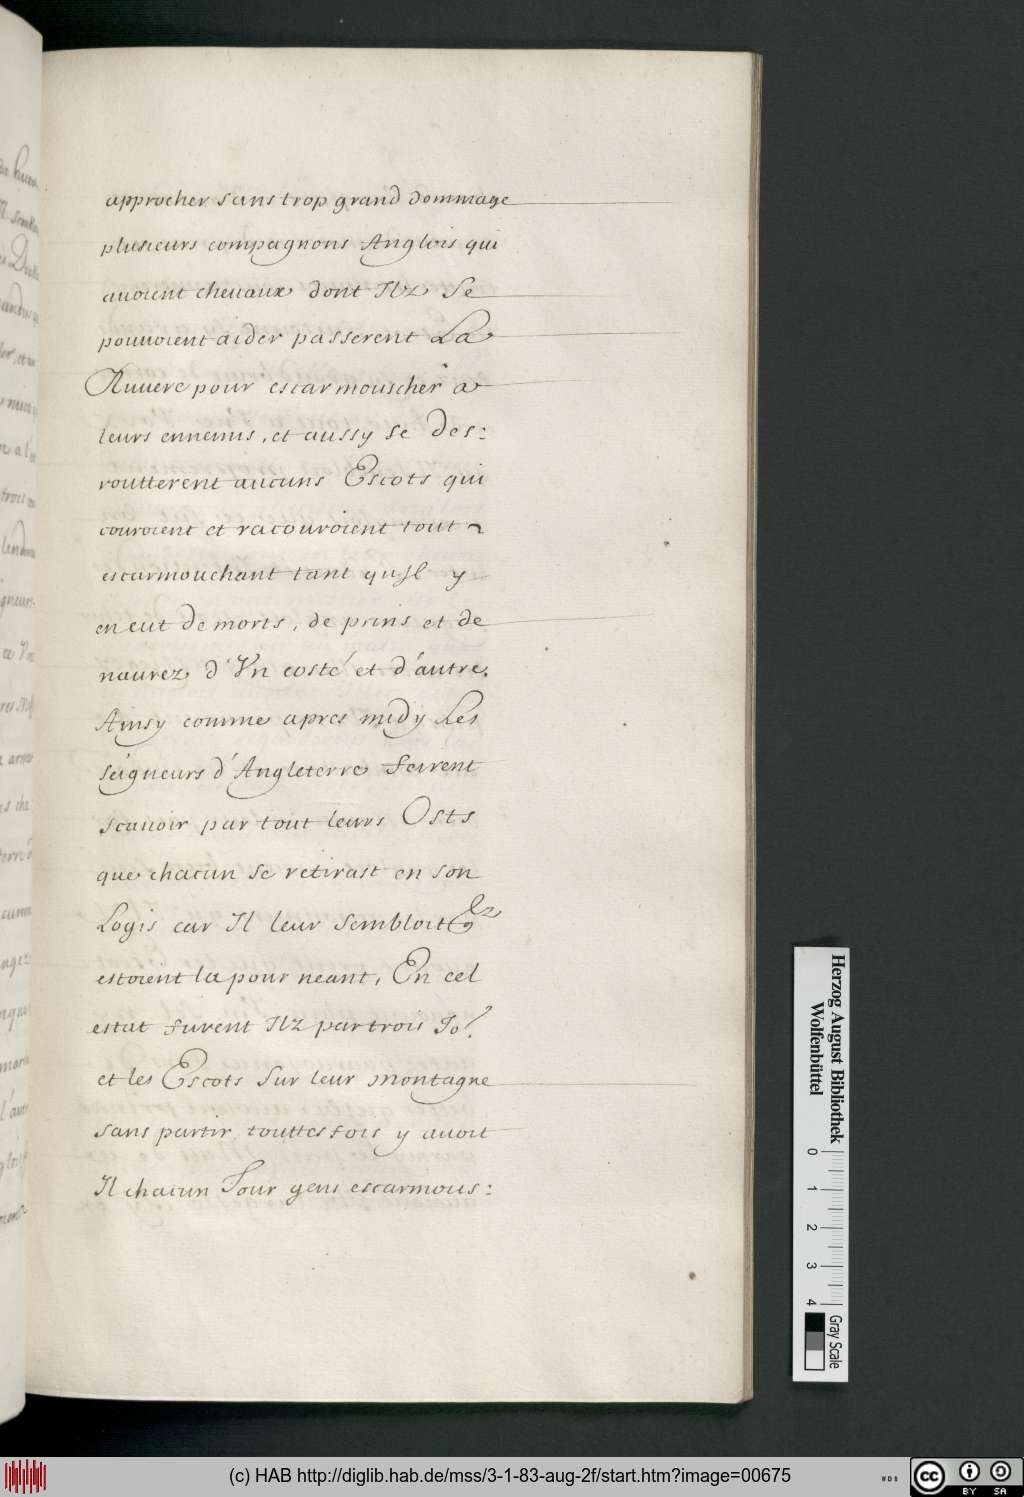 approcher sans trop grand dommage
plusieurs compagnons Anglois qui
auoient cheuaux dont Ilz se
pouuoient aider passerent La
Riuiere pour escarmouscher a
leurs ennemis, et aussy se des:
routterent aucuns Escots qui
couroient et racouroient tout
escarmouchant tant qu Jl y
en eut de morts, de prins et de
naurez d'Vn costé et d'autre.
Ainsy comme apres midy Les
seigneurs d'Angleterre feirent
scauoir par tout leurs Osts
que chacun se retirast en son
Logis car Il leur sembloit
estoient la pour neant, En cel
estat furent Ilz par trois Jo.
et les Escots sur leur montagne
sans partir, touttesfois y auoit
Il chacun Jour gens escarmous:
Herzog August Bibliothek
Wolfenbüttel
0 1 2 3 4
Gray Scale
(c) HAB http://diglib.hab.de/mss/3-1-83-aug-2f/start.htm?image=00675
WDB
cc BY SA